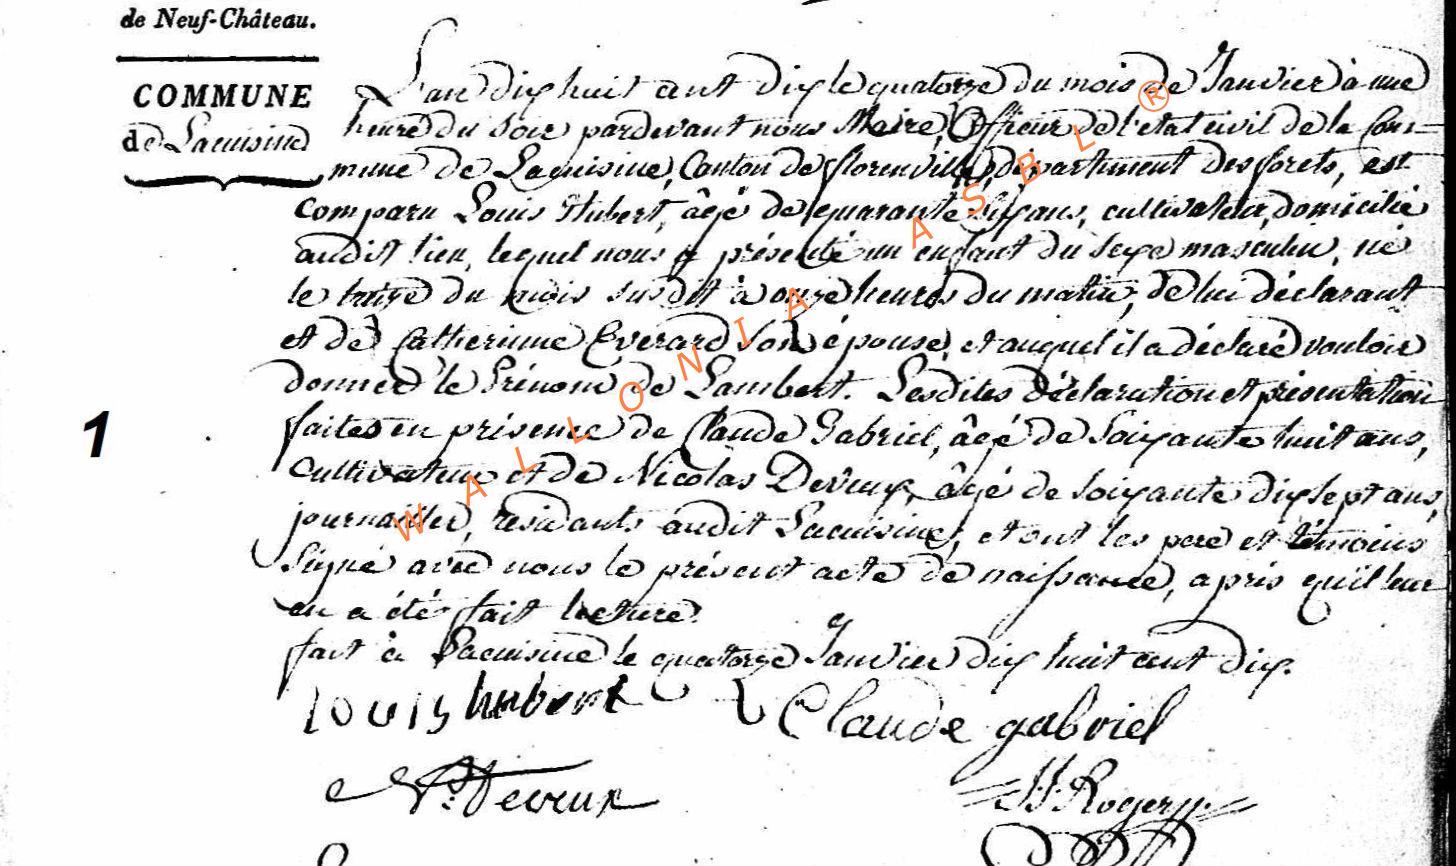 de Neuf-Château.
COMMUNE
de Lacuisine
L'an dix huit cent dix le quatorze du mois de Janvier à une
heure du soir pardevant nous Maire, Officier de l'etat civil de la Com-
mune de Lacuisine, Canton de florenville, département des forets, est
comparu Louis Hubert, âgé de quarante six ans, cultivateur, domicilié
audit lieu, lequel nous a présenté un enfant du sexe masculin, né
le treize du mois susdit à onze heures du matin, de lui déclarant
et de Catherinne Everard son épouse, et auquel il a déclaré vouloir
donner le Prénom de Lambert. Lesdites déclaration et présentation
faites en présence de Claude Gabriel, âgé de soixante huit ans,
cultivateur et de Nicolas Deveux, âgé de soixante dix sept ans,
journailler, résidants audit Lacuisine, et ont les pere et témoins
signé avec nous le présent acte de naissance, après qu'il leur
en a été fait lecture.
fait à Lacuisine le quatorze Janvier dix huit cent dix.
louis hubert Claude gabriel
N: Deveux J.J. Rogery
1
WALLONIA ASBL ®